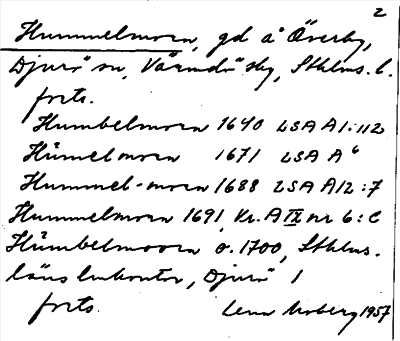 2
Hummelmora, gd å Överby,
Djurö sn, Värmdö skg, Sthlms l.
forts.
Humbelmora 1640 LSA A1:112
Hümelmora 1671 LSA A6
Hummel-mora 1688 LSA A12:7
Hummelmora 1691, Kr. A IX nr 6:C
Hümbelmoora o. 1700, Sthlms.
läns lmkontor, Djurö 1
forts. Lena Moberg 1957